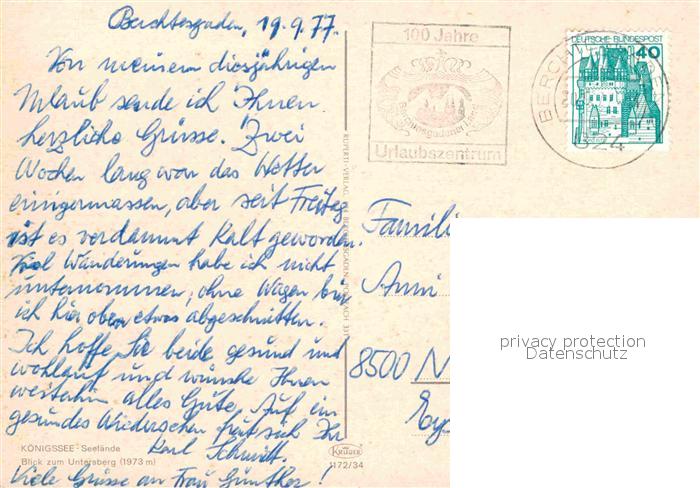 Berchtesgaden, 19.9.77
Von meinem diesjährigen
Urlaub sende ich Ihnen
herzliche Grüsse. Zwei
Wochen lang war das Wetter
einigermassen, aber seit Freitag
ist es verdammt kalt geworden.
Viel Wanderungen habe ich nicht
unternommen, ohne Wagen bin
ich hier oben etwas abgeschnitten.
Ich hoffe Sie beide gesund und
wohlauf und wünsche Ihnen
weiterhin alles Gute. Auf ein
gesundes Wiedersehen freut sich Ihr
Karl Schmidt.
Viele Grüsse an Frau Günther!
KÖNIGSSEE - Seelände
Blick zum Untersberg (1973 m)
KRÜGER
1172/34
RUPERTI-VERLAG
100 Jahre
Berchtesgadener Land
Urlaubszentrum
DEUTSCHE BUNDESPOST
40
BERCH
824
Famili
Anni
8500 N
privacy protection
Datenschutz